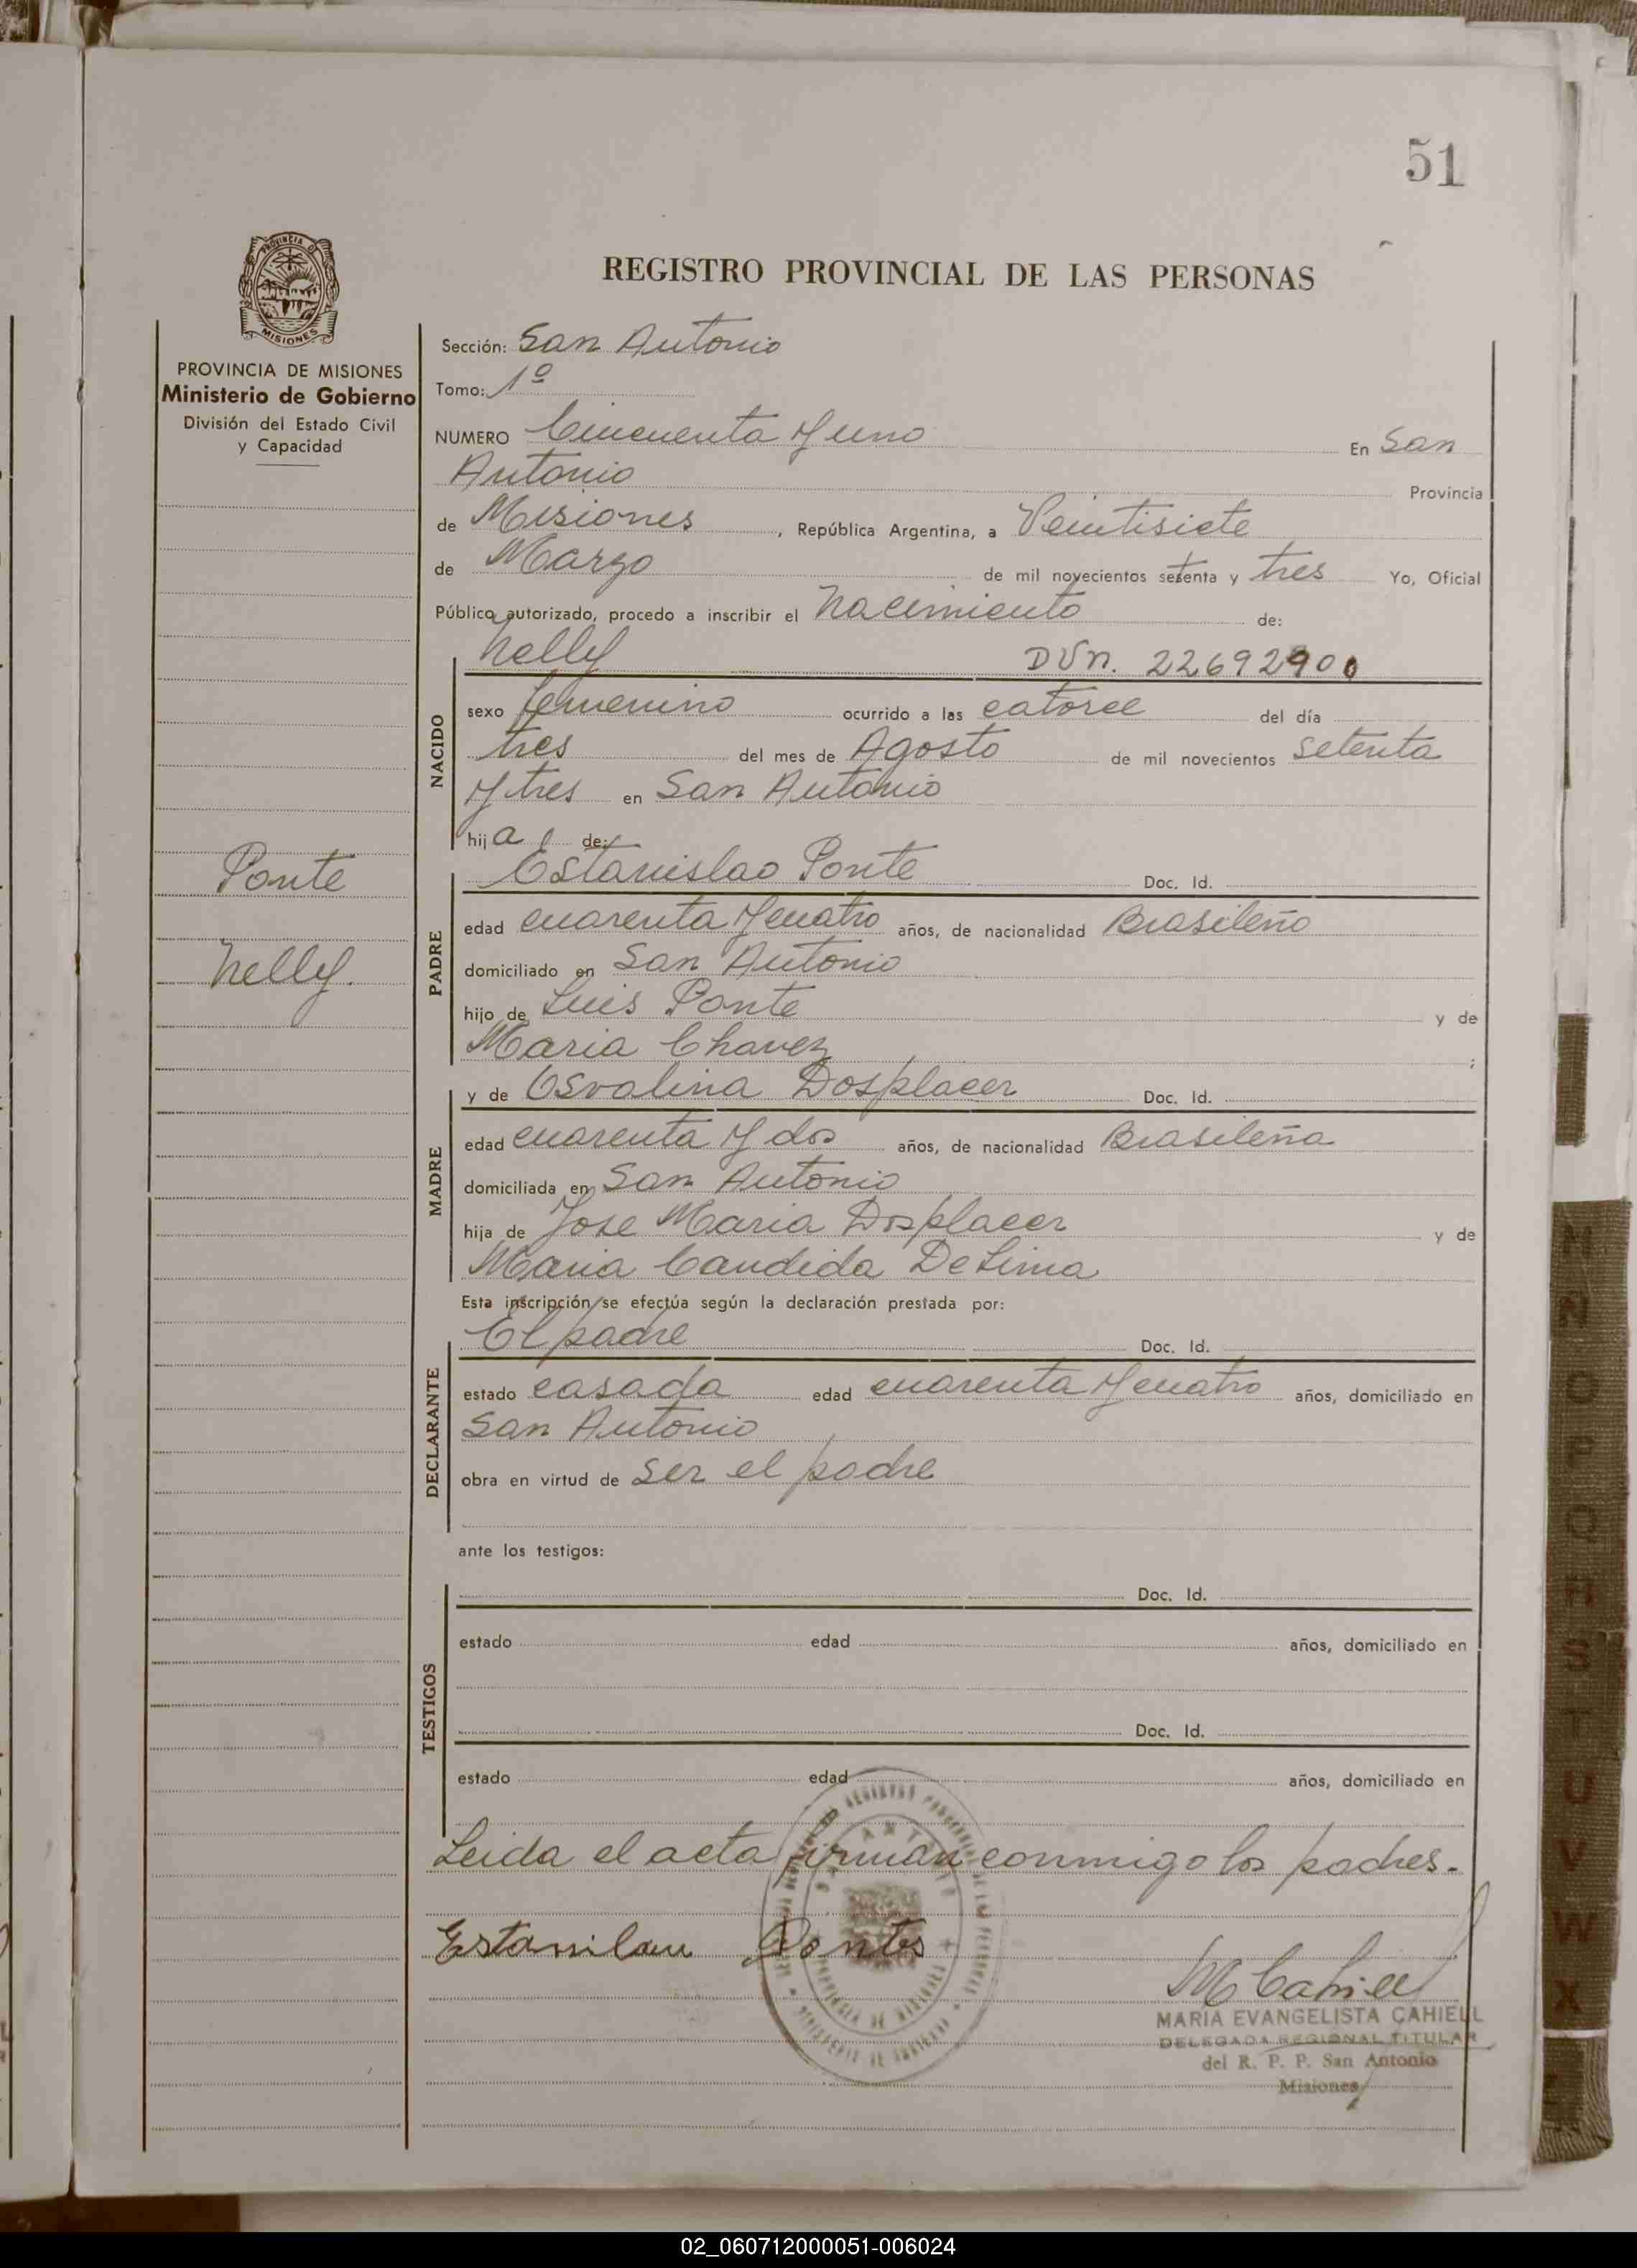 51
PROVINCIA DE MISIONES
REGISTRO PROVINCIAL DE LAS PERSONAS
PROVINCIA DE MISIONES
Ministerio de Gobierno
División del Estado Civil
y Capacidad
Sección: San Antonio
Tomo: 1º
NUMERO Cincuenta y uno En San
Antonio Provincia
de Misiones, República Argentina, a Veintisiete
de Marzo de mil novecientos setenta y tres Yo, Oficial
Público autorizado, procedo a inscribir el nacimiento de:
Nelly DUn. 22692900
NACIDO
sexo femenino ocurrido a las catorce del día
tres del mes de Agosto de mil novecientos setenta
y tres en San Antonio
hija de:
Ponte
Nelly.
PADRE
Estanislao Ponte Doc. Id.
edad cuarenta y cuatro años, de nacionalidad Brasileño
domiciliado en San Antonio
hijo de Luis Ponte y de
Maria Chavez ;
MADRE
y de Osvalina Dosplacer Doc. Id.
edad cuarenta y dos años, de nacionalidad Brasileña
domiciliada en San Antonio
hija de Jose Maria Dosplacer y de
Maria Candida De Lima
Esta inscripción se efectúa según la declaración prestada por:
DECLARANTE
El padre Doc. Id.
estado casada edad cuarenta y cuatro años, domiciliado en
San Antonio
obra en virtud de ser el padre
ante los testigos:
TESTIGOS
Doc. Id.
estado edad años, domiciliado en
Doc. Id.
estado edad años, domiciliado en
Leida el acta firman conmigo los padres.
Estanilau Pontes
M Cahiell
MARIA EVANGELISTA CAHIELL
DELEGADA REGIONAL TITULAR
del R. P. P. San Antonio
Misiones
M
N
O
P
Q
R
S
T
U
V
W
X
02_060712000051-006024